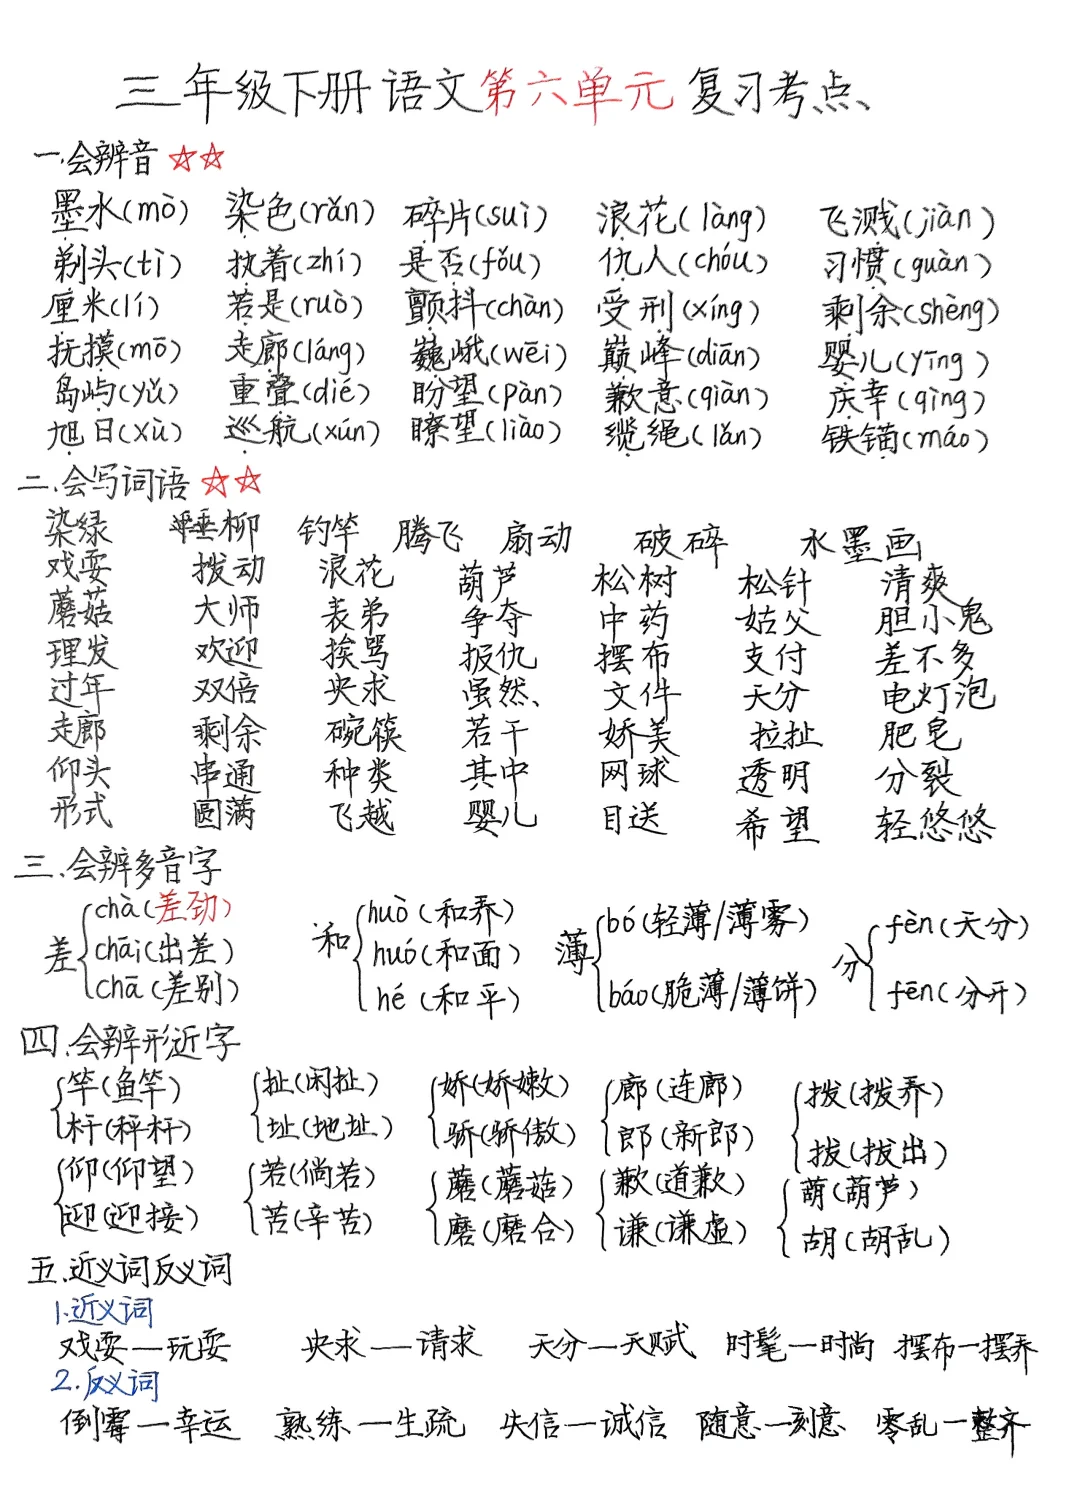 三年级下册语文第六单元复习考点
一.会辨音☆☆
墨水(mò) 染色(rǎn) 碎片(suì) 浪花(làng) 飞溅(jiàn)
剃头(tì) 执着(zhí) 是否(fǒu) 仇人(chóu) 习惯(guàn)
厘米(lí) 若是(ruò) 颤抖(chàn) 受刑(xíng) 剩余(shèng)
抚摸(mō) 走廊(láng) 巍峨(wēi) 巅峰(diān) 婴儿(yīng)
岛屿(yǔ) 重叠(dié) 盼望(pàn) 歉意(qiàn) 庆幸(qìng)
旭日(xù) 巡航(xún) 瞭望(liào) 缆绳(lǎn) 铁锚(máo)
二.会写词语☆☆
染绿 垂柳 钓竿 腾飞 扇动 破碎 水墨画
戏耍 拨动 浪花 葫芦 松树 松针 清爽
蘑菇 大师 表弟 争夺 中药 姑父 胆小鬼
理发 欢迎 挨骂 报仇 摆布 支付 差不多
过年 双倍 央求 虽然 文件 天分 电灯泡
走廊 剩余 碗筷 若干 娇美 拉扯 肥皂
仰头 串通 种类 其中 网球 透明 分裂
形式 圆满 飞越 婴儿 目送 希望 轻悠悠
三.会辨多音字
差{chà(差劲) chāi(出差) chā(差别)
和{huò(和弄) huó(和面) hé(和平)
薄{bó(轻薄/薄雾) báo(脆薄/薄饼)
分{fèn(天分) fēn(分开)
四.会辨形近字
竿(鱼竿) 扯(闲扯) 娇(娇嫩) 廊(连廊) 拨(拨弄)
杆(秤杆) 址(地址) 骄(骄傲) 郎(新郎) 拔(拔出)
仰(仰望) 若(倘若) 蘑(蘑菇) 歉(道歉) 葫(葫芦)
迎(迎接) 苦(辛苦) 磨(磨合) 谦(谦虚) 胡(胡乱)
五.近义词反义词
1.近义词
戏耍—玩耍 央求—请求 天分—天赋 时髦—时尚 摆布—摆弄
2.反义词
倒霉—幸运 熟练—生疏 失信—诚信 随意—刻意 零乱—整齐